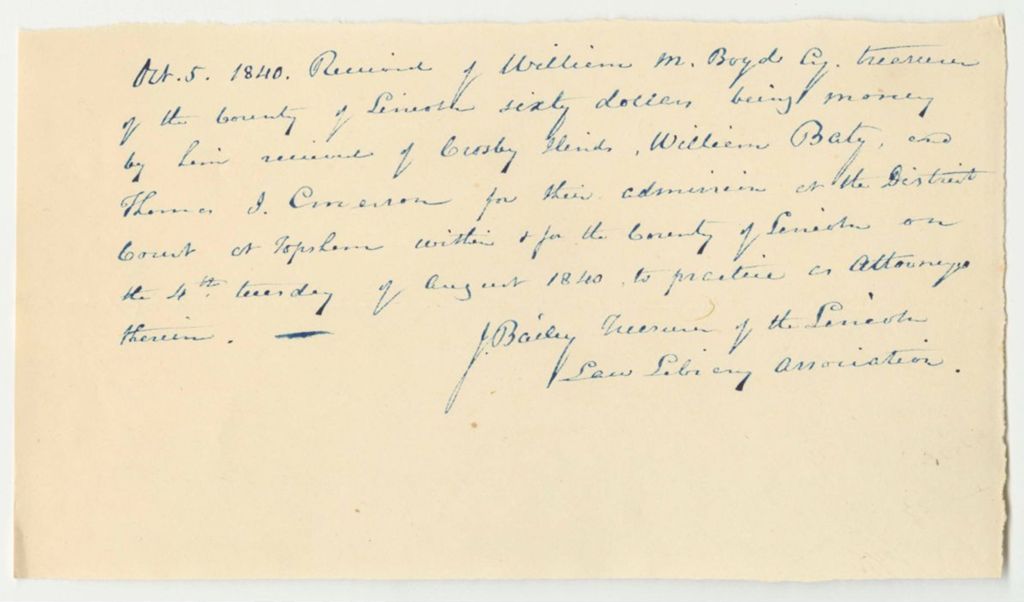 Oct. 5. 1840. Received of William M. Boyd Esq. treasurer
of the County of Lincoln sixty dollars being money
by him received of Crosby Hinds, William Baty, and
Thomas J. Emerson for their admission at the District
Court at Topsham within & for the County of Lincoln on
the 4th tuesday of August 1840 to practice as Attorneys
therein. —
J. Bailey Treasurer of the Lincoln
Law Library Association.